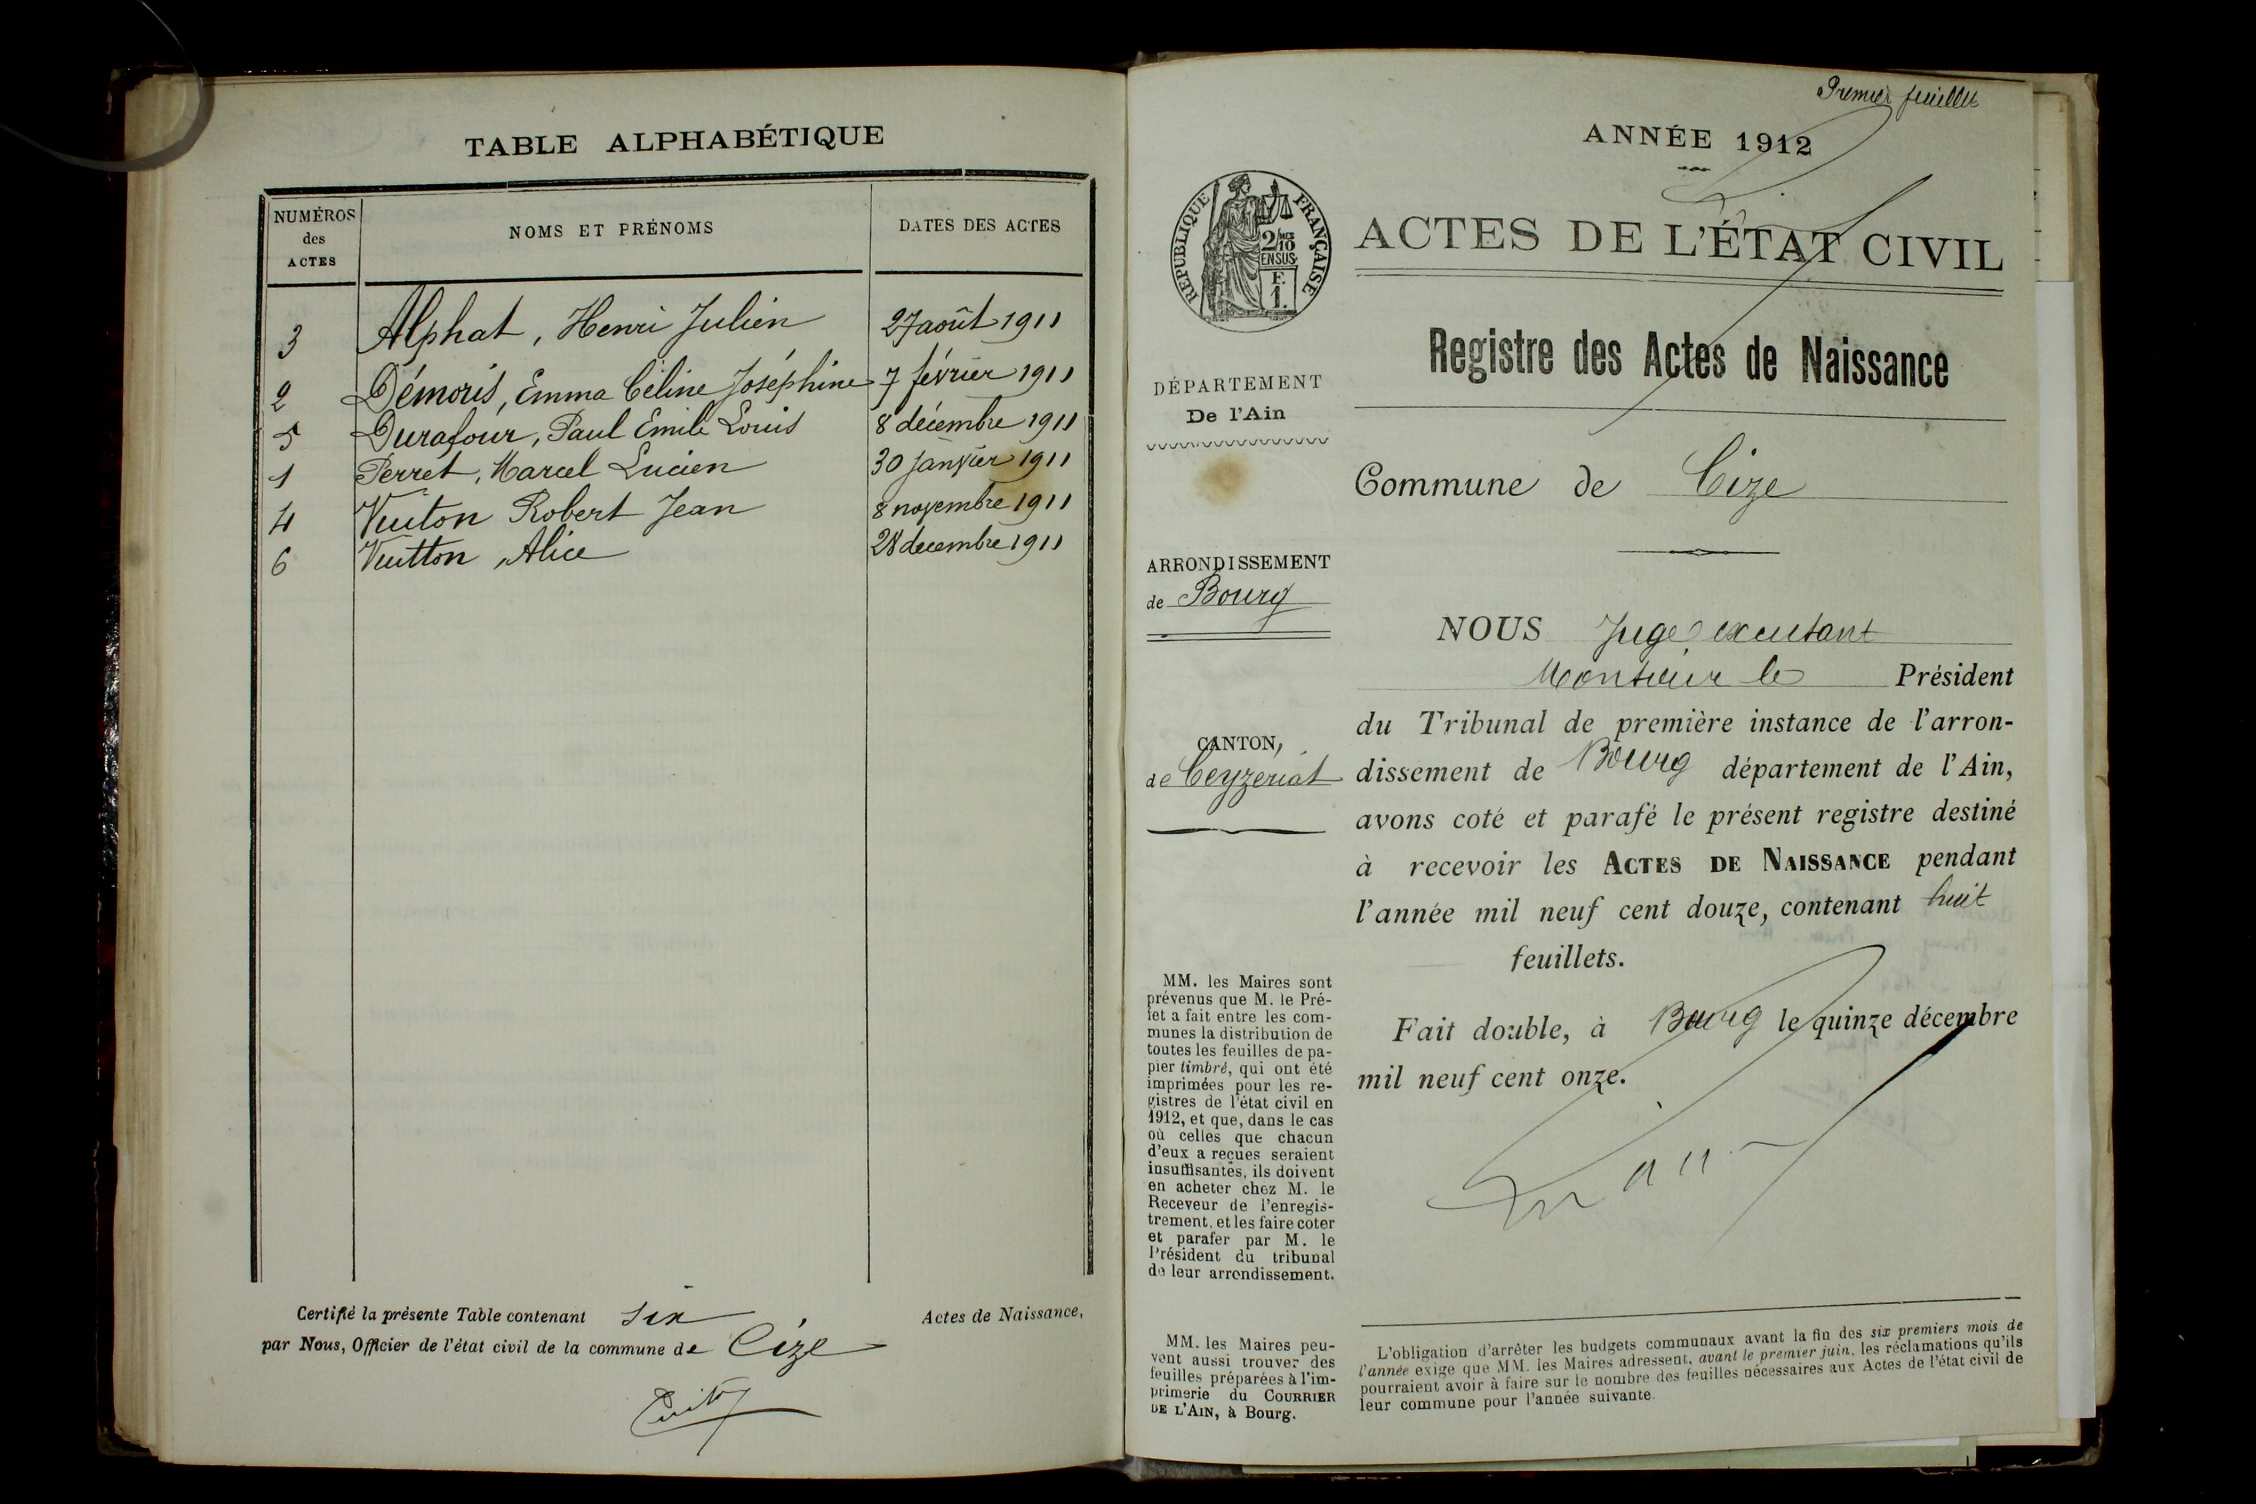 TABLE ALPHABÉTIQUE
NUMÉROS
des
ACTES
NOMS ET PRÉNOMS
DATES DES ACTES
3 Alphat, Henri Julien 27 août 1911
2 Démoris, Emma Céline Joséphine 7 février 1911
5 Durafour, Paul Emile Louis 8 décembre 1911
1 Perret, Marcel Lucien 30 janvier 1911
4 Vuiton Robert Jean 8 novembre 1911
6 Vuitton, Alice 28 decembre 1911
Certifié la présente Table contenant six Actes de Naissance,
par Nous, Officier de l'état civil de la commune de Cize
Premier feuillet
ANNÉE 1912
RÉPUBLIQUE FRANÇAISE
2/10
EN SUS
F.
1.
ACTES DE L'ÉTAT CIVIL
Registre des Actes de Naissance
DÉPARTEMENT
De l'Ain
Commune de Cize
ARRONDISSEMENT
de Bourg
CANTON
de Ceyzeriat
NOUS Juge
Monsieur le Président
du Tribunal de première instance de l'arron-
dissement de Bourg département de l'Ain,
avons coté et parafé le présent registre destiné
à recevoir les ACTES DE NAISSANCE pendant
l'année mil neuf cent douze, contenant huit
feuillets.
Fait double, à Bourg le quinze décembre
mil neuf cent onze.
MM. les Maires sont
prévenus que M. le Pré-
fet a fait entre les com-
munes la distribution de
toutes les feuilles de pa-
pier timbré, qui ont été
imprimées pour les re-
gistres de l'état civil en
1912, et que, dans le cas
où celles que chacun
d'eux a reçues seraient
insuffisantes, ils doivent
en acheter chez M. le
Receveur de l'enregis-
trement, et les faire coter
et parafer par M. le
Président du tribunal
de leur arrondissement.
MM. les Maires peu-
vent aussi trouver des
feuilles préparées à l'im-
primerie du COURRIER
DE L'AIN, à Bourg.
L'obligation d'arrêter les budgets communaux avant la fin des six premiers mois de
l'année exige que MM. les Maires adressent, avant le premier juin, les réclamations qu'ils
pourraient avoir à faire sur le nombre des feuilles nécessaires aux Actes de l'état civil de
leur commune pour l'année suivante.